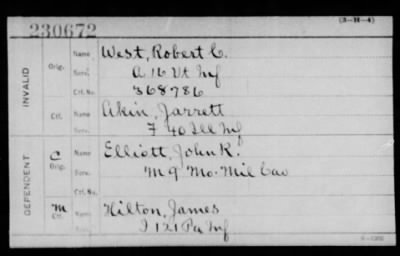 (3-H-4)
230672
INVALID
Orig.
Name
West, Robert C.
Serv.
A 16 Vt Inf
Ctf. No.
368786
Ctf.
Name
Akin, Jarrett
Serv.
F 40 Ill Inf
DEPENDENT
C
Orig.
Name
Elliott, John K.
Serv.
M 9 Mo. Mil Cav
Ctf. No.
M
Ctf.
Name
Hilton, James
Serv.
I 121 Pa Inf